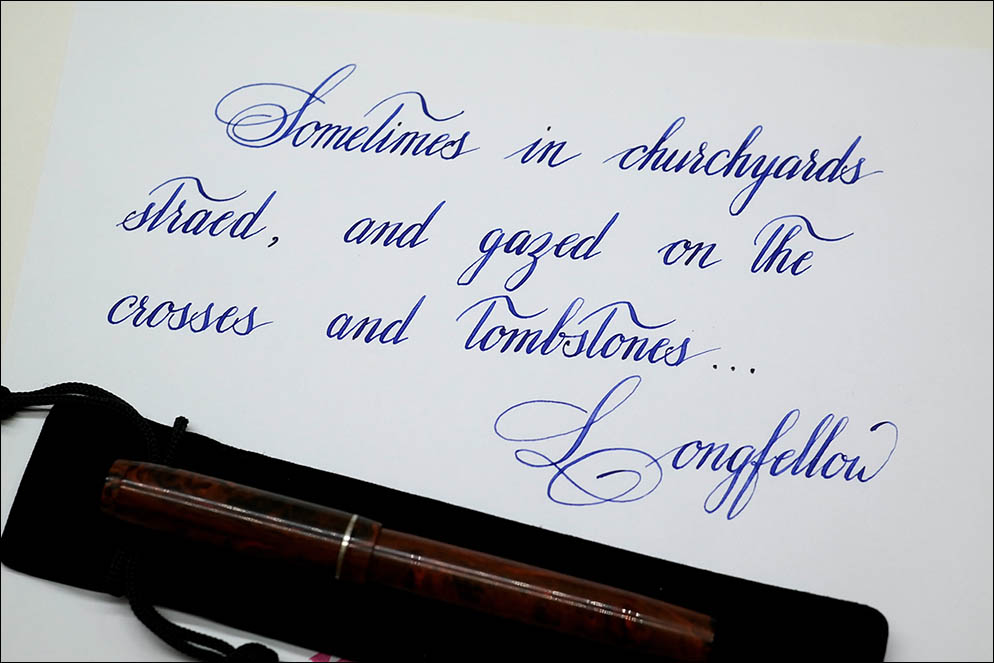 Sometimes in churchyards
straed, and gazed on the
crosses and tombstones...
Longfellow